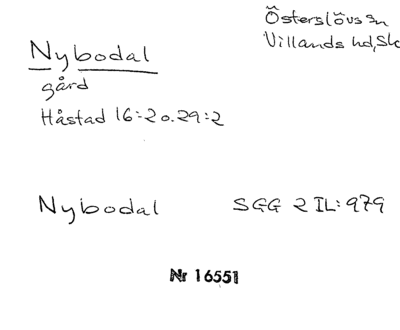 Österslövs sn
Villands hd, Sk
Nybodal
gård
Håstad 16:2 o. 29:2
Nybodal SGG 2 IL: 979
Nr 16551